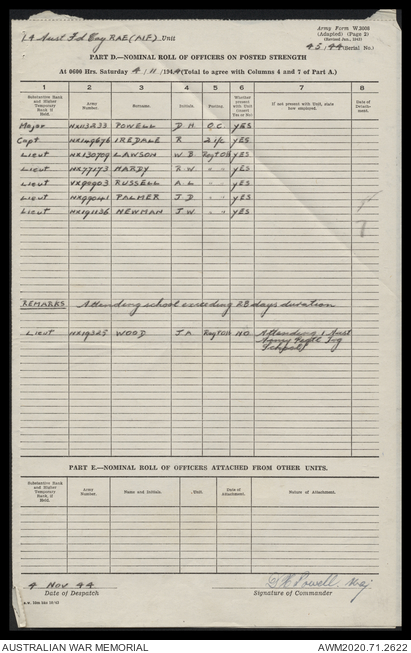 Army Form W.3008
(Adapted) (Page 2)
(Revised Jan., 1943)
14 Aust Fd Coy RAE (AIF) Unit
45/44 (Serial No.)
PART D.—NOMINAL ROLL OF OFFICERS ON POSTED STRENGTH
At 0600 Hrs. Saturday 4/11/1944 (Total to agree with Columns 4 and 7 of Part A.)
1 2 3 4 5 6 7 8
Substantive Rank and Higher Temporary Rank if Held. Army Number. Surname. Initials. Posting. Whether present with Unit (insert Yes or No) If not present with Unit, state how employed. Date of Detachment.
Major POWELL D H O.C. YES
Capt IREDALE R 2 i/c YES
Lieut LAWSON W B YES
Lieut NX77173 HARDY R W " " YES
Lieut RUSSELL A L " " YES
Lieut PALMER J D " " YES
Lieut NX191136 NEWMAN J W " " YES
REMARKS Attending school exceeding 28 days duration
Lieut NX19325 WOOD J A NO Attending 1 Aust
Army
School
PART E.—NOMINAL ROLL OF OFFICERS ATTACHED FROM OTHER UNITS.
Substantive Rank and Higher Temporary Rank, if Held. Army Number. Name and Initials. Unit. Date of Attachment. Nature of Attachment.
4 Nov 44
Date of Despatch
D H Powell Maj
Signature of Commander
AUSTRALIAN WAR MEMORIAL
AWM2020.71.2622